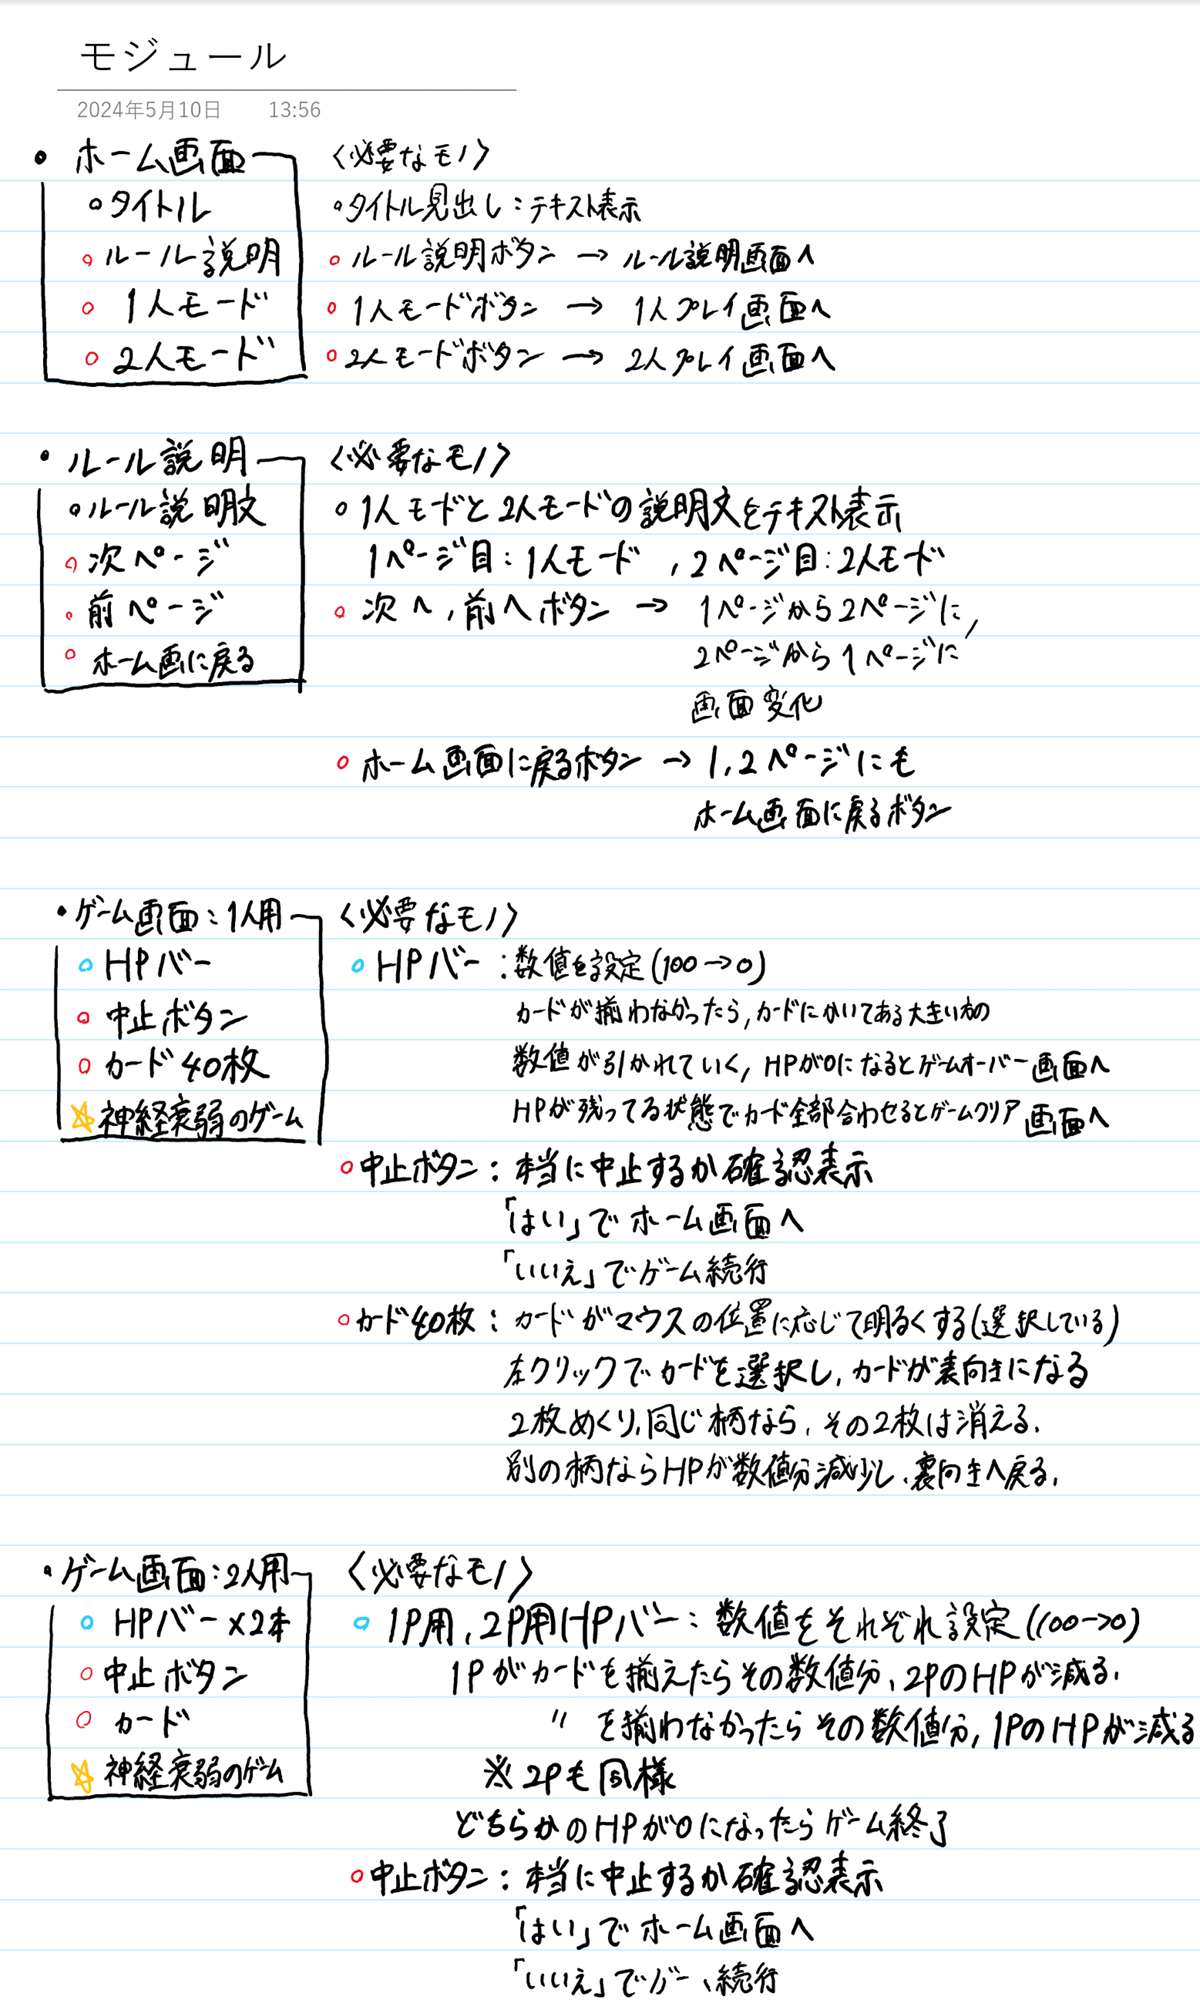 モジュール
2024年5月10日 13:56
・ホーム画面 〈必要なモノ〉
○タイトル ○タイトル見出し：テキスト表示
○ルール説明 ○ルール説明ボタン → ルール説明画面へ
○1人モード ○1人モードボタン → 1人プレイ画面へ
○2人モード ○2人モードボタン → 2人プレイ画面へ
・ルール説明 〈必要なモノ〉
○ルール説明文 ○1人モードと2人モードの説明文をテキスト表示
○次ページ 1ページ目：1人モード，2ページ目：2人モード
○前ページ ○次へ，前へボタン → 1ページから2ページに，
○ホーム画に戻る 2ページから1ページに
画面変化
○ホーム画面に戻るボタン → 1,2ページにも
ホーム画面に戻るボタン
・ゲーム画面：1人用 〈必要なモノ〉
○HPバー ○HPバー：数値を設定(100→0)
○中止ボタン カードが揃わなかったら，カードにかいてある大きい方の
○カード40枚 数値が引かれていく，HPが0になるとゲームオーバー画面へ
☆神経衰弱のゲーム HPが残ってる状態でカード全部合わせるとゲームクリア画面へ
○中止ボタン：本当に中止するか確認表示
「はい」でホーム画面へ
「いいえ」でゲーム続行
○カード40枚：カードがマウスの位置に応じて明るくする(選択している)
左クリックでカードを選択し，カードが表向きになる
2枚めくり，同じ柄なら，その2枚は消える．
別の柄ならHPが数値分減少し，裏向きへ戻る．
・ゲーム画面：2人用 〈必要なモノ〉
○HPバー×2本 ○1P用，2P用HPバー：数値をそれぞれ設定(100→0)
○中止ボタン 1Pがカードを揃えたらその数値分，2PのHPが減る．
○カード 〃 を揃わなかったらその数値分，1PのHPが減る
☆神経衰弱のゲーム ※2Pも同様
どちらかのHPが0になったらゲーム終了
○中止ボタン：本当に中止するか確認表示
「はい」でホーム画面へ
「いいえ」でゲー、続行